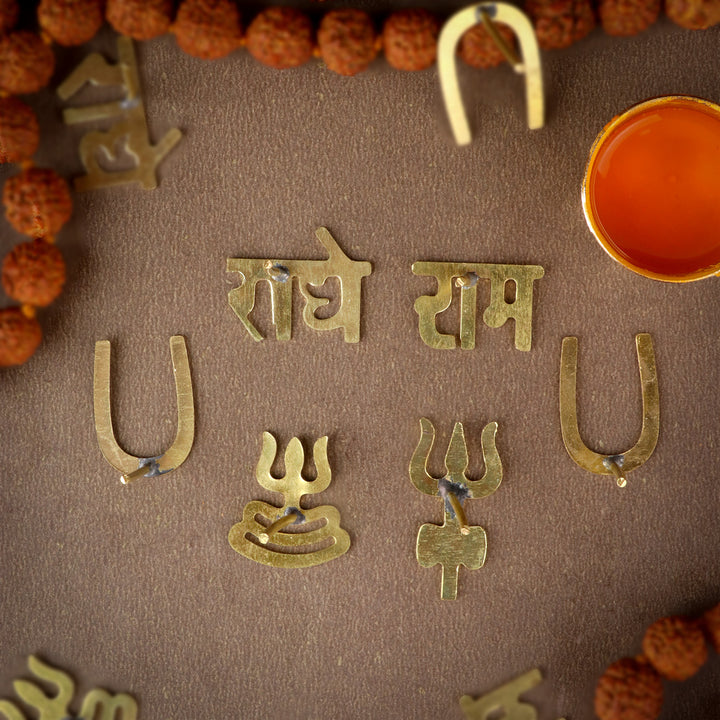 राधे राम